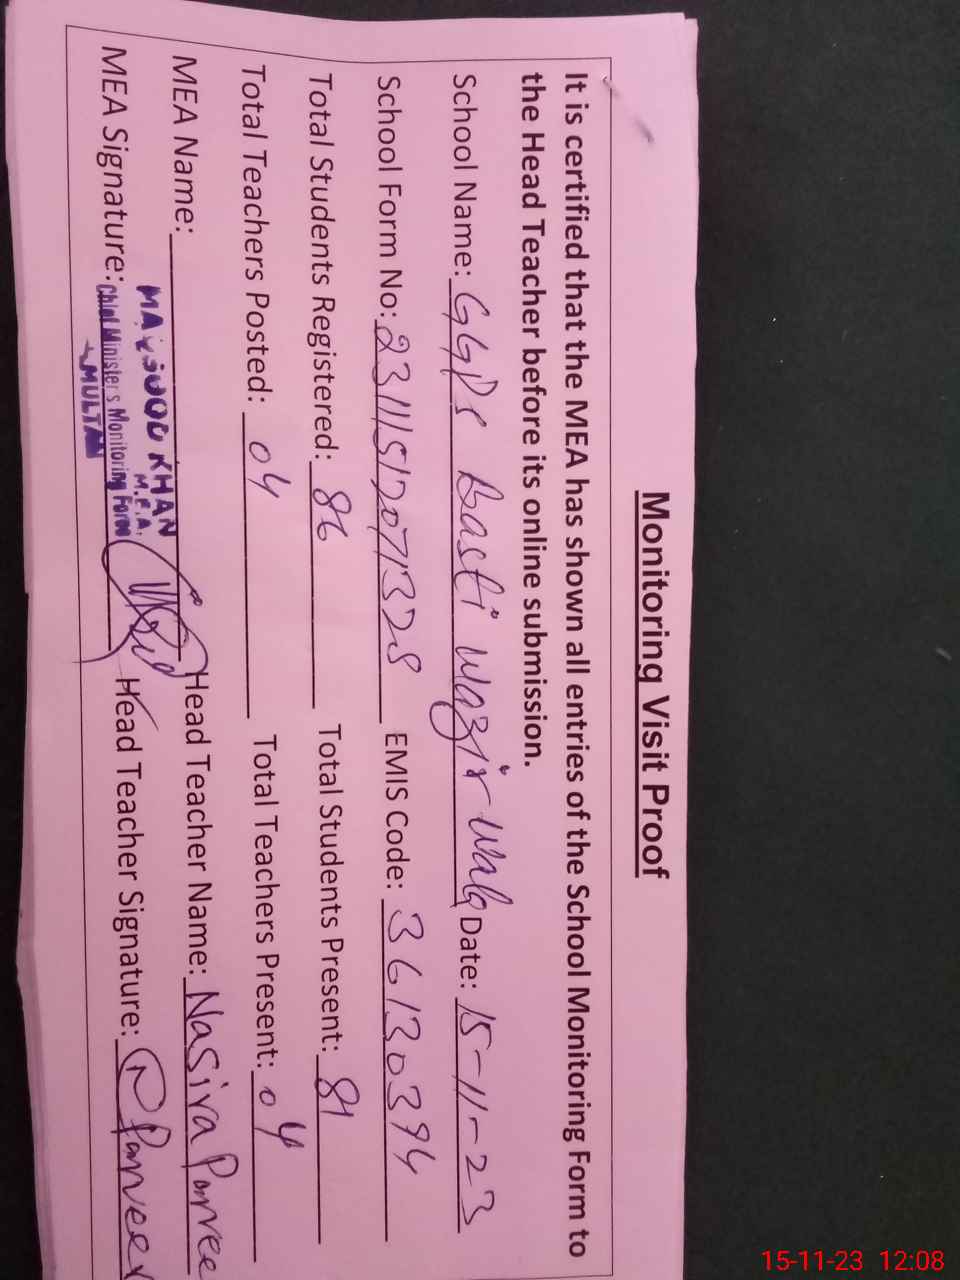 Monitoring Visit Proof
It is certified that the MEA has shown all entries of the School Monitoring Form to
the Head Teacher before its online submission.
School Name: GGPS Basti Wazir Wala Date: 15-11-23
School Form No: EMIS Code: 36130394
Total Students Registered: 86 Total Students Present: 81
Total Teachers Posted: 04 Total Teachers Present: 04
MEA Name: MAQSOOD KHAN Head Teacher Name: Nasira Parvee
M.E.A.
MEA Signature: Chief Minister's Monitoring Force Head Teacher Signature: N Parveen
MULTAN
15-11-23 12:08